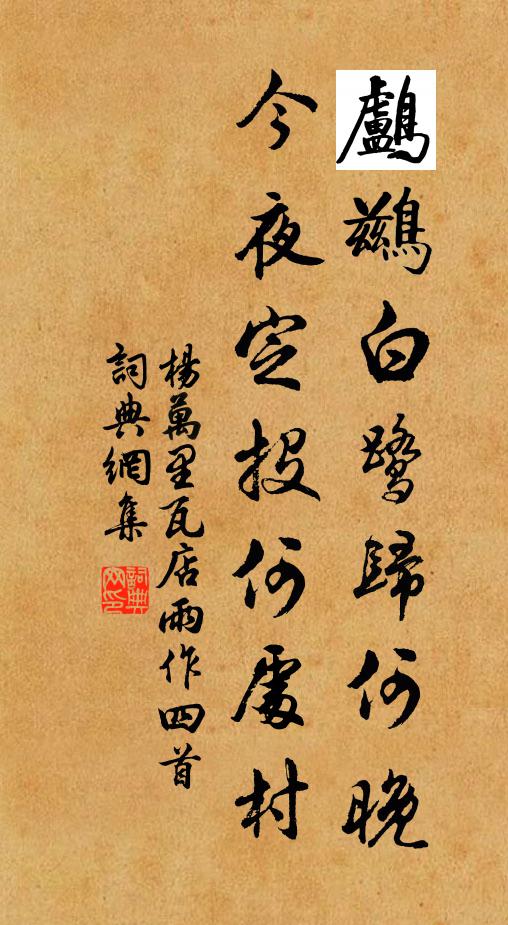 鸕鷀白鷺歸何晚
今夜定投何處村
楊萬里瓦店雨作四首
詞典網集
詞典網印